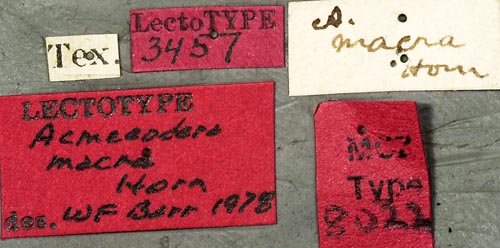 Tex.
LectoTYPE
3457
A.
macra
Horn
LECTOTYPE
Acmaeodera
macra
Horn
des. WF Barr 1978
MCZ
Type
8022